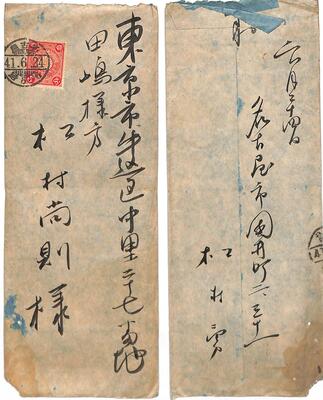 東京市牛込区中里二十七番地
田嶋様方
松村尚則様
41.6.24
六月二十四日
名古屋市
松村